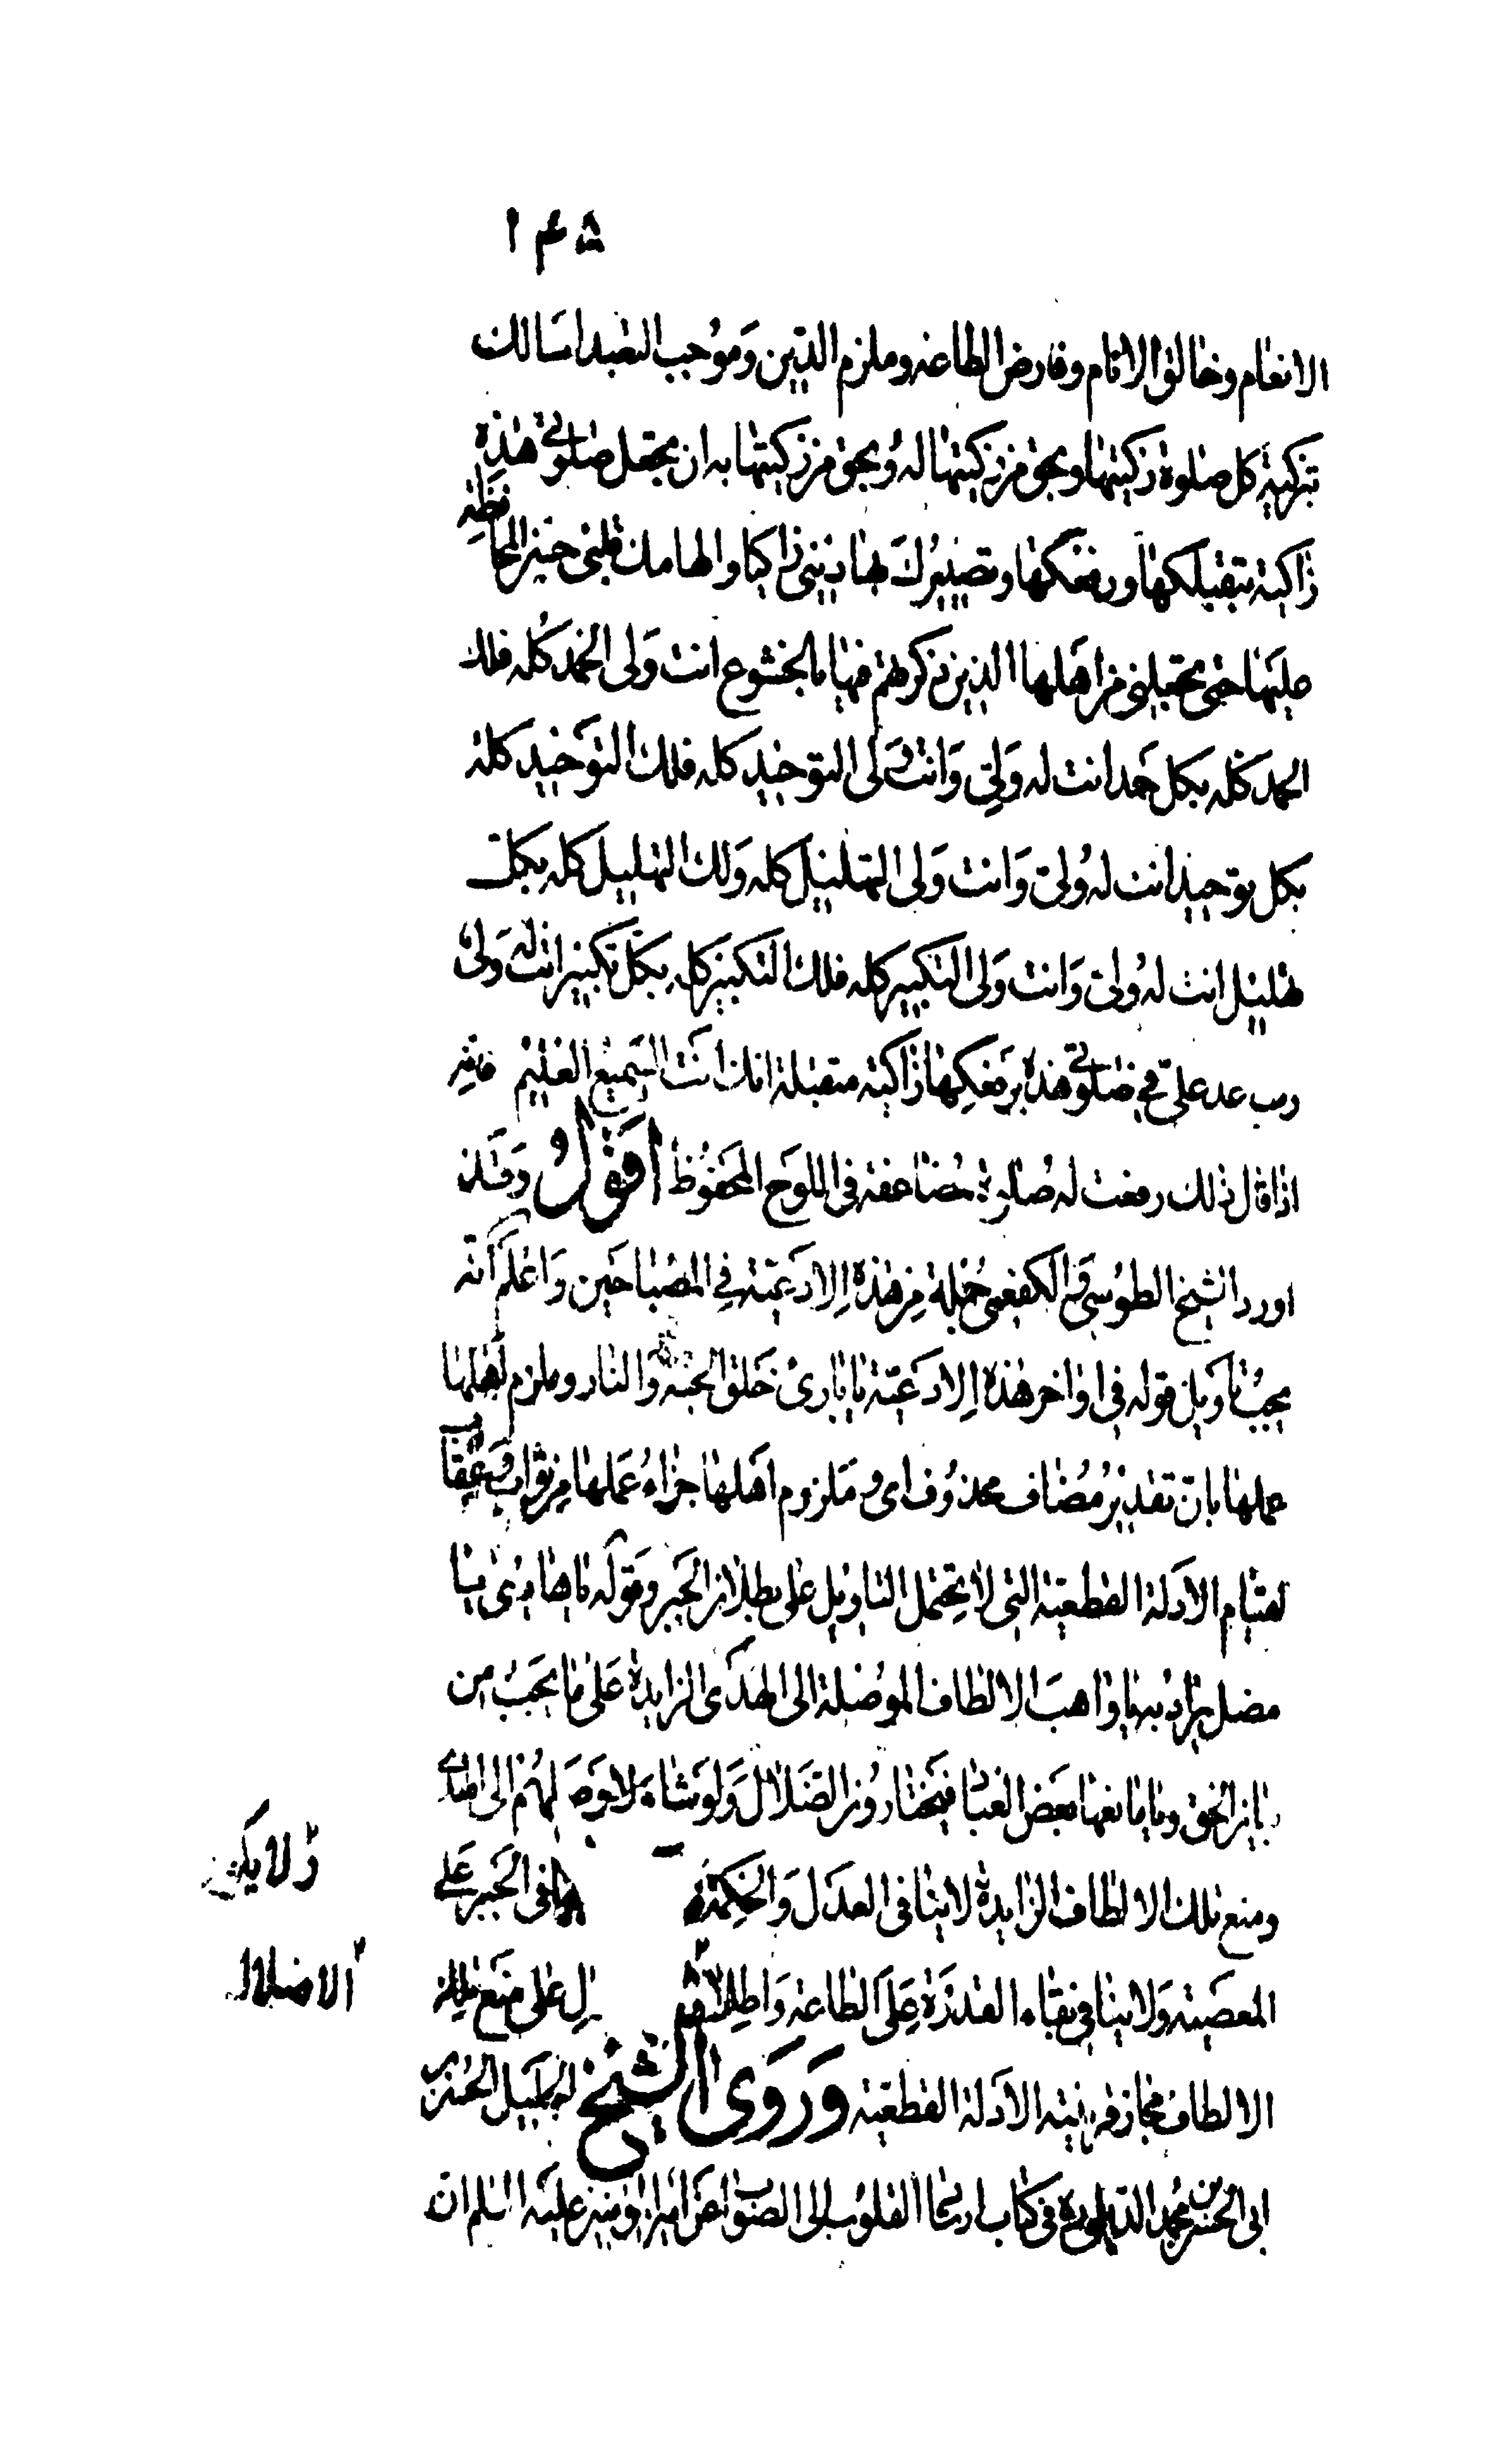 ١٤٥
الانعام وخالق الانام وفارض الطاعه وملزم الدين وموجب التعبد اسالك
بتزكية كل صلوة زكيتها وبحق من زكيتها له وبحق من زكيتها به ان تجعل صلوتي هذه
زاكية متقبلة بتقبلكها ورفعكها وتصييرك بها ديني زاكيا والهامك قلبي حسن المحافظة
عليها حتى تجعلني من اهلها الذين ذكرتهم فيها بالخشوع انت ولى الحمد كله فلك
الحمد كله بكل حمد انت له ولي وانت ولى التوحيد كله فلك التوحيد كله
بكل توحيد انت له ولي وانت ولى التهليل كله ولك التهليل كله بكل
تهليل انت له ولي وانت ولى التكبير كله فلك التكبير كله بكل تكبير انت له ولي
رب عد على في صلوتي هذه برفعكها زاكية متقبلة انك انت السميع العليم فانه
اذا قال ذلك رفعت له صلوة مضاعفه في اللوح المحفوظ اقول وقد
اورد الشيخ الطوسي و الكفعمي جملة من هذه الادعية في المصباحين واعلم انه
يجب تاويل قوله في اواخر هذه الادعية يا بارئ خلق الجنه والنار وملزم اهلها
عملها بان تقدير مضاف محذوف اى وملزوم اهلها جزاء عملها من ثواب وعقاب
لقيام الادلة القطعية التي لا تحتمل التاويل على بطلان الجبر وقوله يا هادى يا
مضل يراد بها واهب الالطاف الموصلة الى الهدى الزايدة على ما يجب من
بيان الحق ومانعها بعض العباد فيختارون الضلال ولو شاء لاوصلهم الى الهدى
ومنع تلك الالطاف الزايدة لا ينافي العدل والحكمة في الجبر على
ولا يكون
المعصية ولا ينافي بقاء القدرة على الطاعه واطلاق على منع تلك
الاضلال
الالطاف مجاز قرينته الادلة القطعية وروى الشيخ الجليل الحسن
ابى الحسن بن محمد الديلمي في كتاب ارشاد القلوب الى الصواب عن امير المؤمنين عليه السلم ان